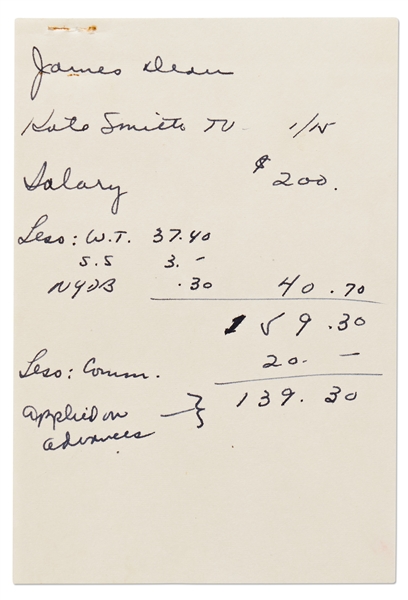 James Dean
Kate Smith TV 1/15
Salary $200.
Less: W.T. 37.40
S.S 3.-
NYDB .30 40.70
159.30
Less: Comm. 20.-
139.30
applied on
advances